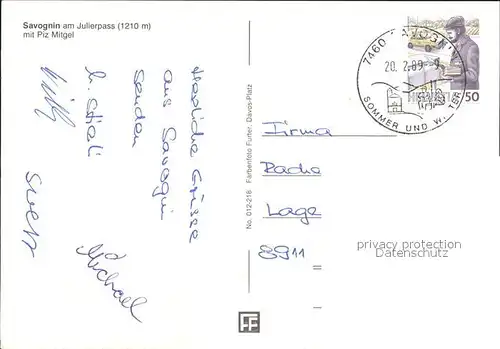 Savognin am Julierpass (1210 m)
mit Piz Mitgel
Herzliche Grüsse
aus Savognin
senden
Michael
No. 012-218 Farbenfoto Furter, Davos-Platz
7460 SAVOGNIN
20.2.89-9
SOMMER UND WINTER
HELVETIA 50
Firma
Racha
Lage
8911
privacy protection
Datenschutz
FF